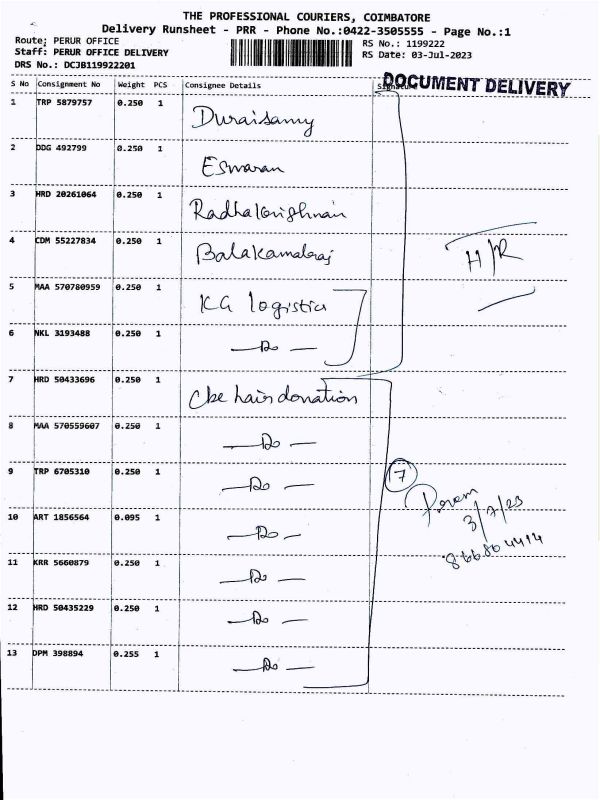 THE PROFESSIONAL COURIERS, COIMBATORE
Delivery Runsheet - PRR - Phone No.:0422-3505555 - Page No.:1
Route; PERUR OFFICE
Staff: PERUR OFFICE DELIVERY
DRS No.: DCJB119922201
RS No.: 1199222
RS Date: 03-Jul-2023
S No Consignment No Weight PCS Consignee Details Signature
DOCUMENT DELIVERY
1 TRP 5879757 0.250 1 Duraisamy
2 DDG 492799 0.250 1 Eswaran
3 HRD 20261064 0.250 1 Radhakrishnan
4 CDM 55227834 0.250 1 Balakamalraj
H/R
5 MAA 570780959 0.250 1 KG logistics
6 NKL 3193488 0.250 1 — Do —
7 HRD 50433696 0.250 1 Cbe hair donation
8 MAA 570559607 0.250 1 — Do —
9 TRP 6705310 0.250 1 — Do —
7
3/7/23
10 ART 1856564 0.095 1 — Do —
11 KRR 5660879 0.250 1 — Do —
12 HRD 50435229 0.250 1 — Do —
13 DPM 398894 0.255 1 — Do —